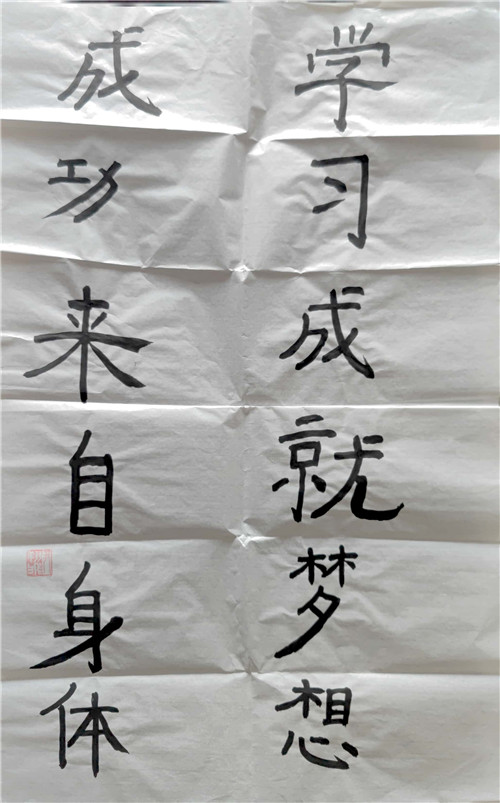 学习成就梦想
成功来自身体